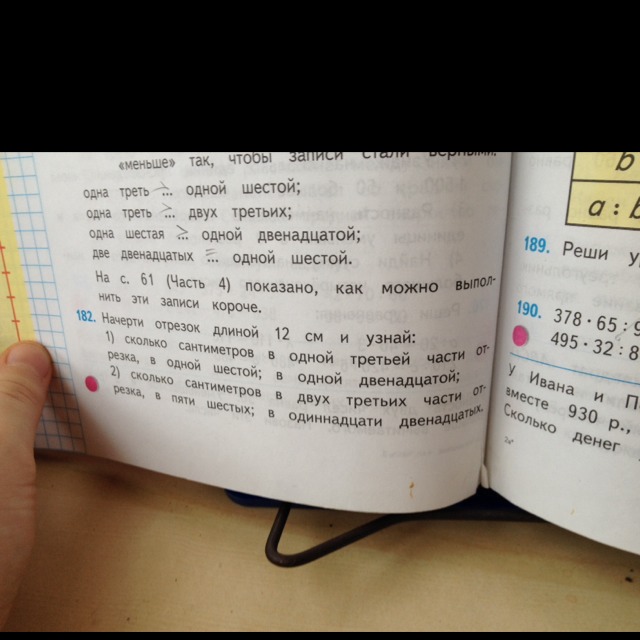 «меньше» так, чтобы записи стали верными:
одна треть > ... одной шестой;
одна треть > ... двух третьих;
одна шестая > ... одной двенадцатой;
две двенадцатых = ... одной шестой.
На с. 61 (Часть 4) показано, как можно выпол-
нить эти записи короче.
182. Начерти отрезок длиной 12 см и узнай:
1) сколько сантиметров в одной третьей части от-
резка, в одной шестой; в одной двенадцатой;
2) сколько сантиметров в двух третьих части от-
резка, в пяти шестых; в одиннадцати двенадцатых.
b
a : b
189. Реши
190. 378 · 65 : 9
495 · 32 : 8
У Ивана и П
вместе 930 р.,
Сколько денег
2*